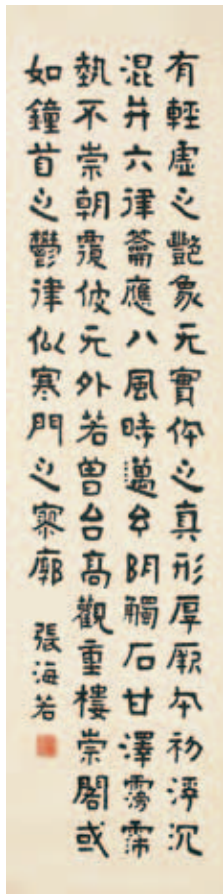 有輕虛之艷象无實体之真形厚厥本初浮沉
混并六律籥應八風時邁玄陰觸石甘澤霶霈
埶不崇朝覆彼无外若曾台高觀重樓崇閣或
如鐘首之鬱律似寒門之寥廓
張海若